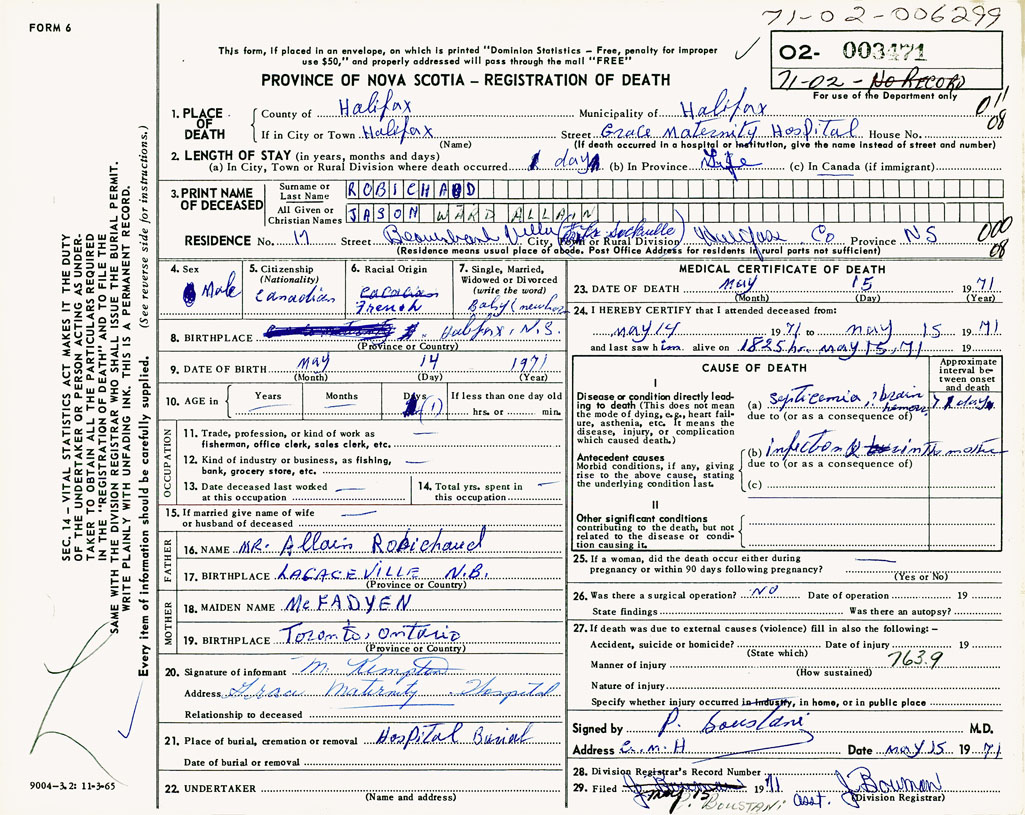 71-02-006299
FORM 6
This form, if placed in an envelope, on which is printed "Dominion Statistics – Free, penalty for improper
use $50," and properly addressed will pass through the mail "FREE"
02- 003471
71-02 - NO RECORD
For use of the Department only
PROVINCE OF NOVA SCOTIA – REGISTRATION OF DEATH
011
08
1. PLACE OF DEATH
County of Halifax Municipality of Halifax
If in City or Town Halifax Street Grace Maternity Hospital House No.
(Name) (If death occurred in a hospital or institution, give the name instead of street and number)
2. LENGTH OF STAY (in years, months and days)
(a) In City, Town or Rural Division where death occurred 1 day (b) In Province Life (c) In Canada (if immigrant)
3. PRINT NAME OF DECEASED
Surname or Last Name ROBICHAUD
All Given or Christian Names JASON WARD ALLAIN
RESIDENCE No. 17 Street Beaverbank Villa City, Town or Rural Division Halifax Co Province NS
(Residence means usual place of abode. Post Office Address for residents in rural parts not sufficient)
000
08
4. Sex
Male
5. Citizenship
(Nationality)
Canadian
6. Racial Origin
Canadian
French
7. Single, Married,
Widowed or Divorced
(write the word)
Baby (newborn
8. BIRTHPLACE Halifax, N.S.
(Province or Country)
9. DATE OF BIRTH May 14 1971
(Month) (Day) (Year)
10. AGE in
Years Months Days (1)
If less than one day old
hrs. or min.
OCCUPATION
11. Trade, profession, or kind of work as
fisherman, office clerk, sales clerk, etc. —
12. Kind of industry or business, as fishing,
bank, grocery store, etc. —
13. Date deceased last worked
at this occupation —
14. Total yrs. spent in
this occupation —
15. If married give name of wife
or husband of deceased —
FATHER
16. NAME MR. Allain Robichaud
17. BIRTHPLACE LAGACEVILLE N.B.
(Province or Country)
MOTHER
18. MAIDEN NAME McFADYEN
19. BIRTHPLACE Toronto, Ontario
(Province or Country)
20. Signature of informant M. Kempton
Address Grace Maternity Hospital
Relationship to deceased
21. Place of burial, cremation or removal Hospital Burial
Date of burial or removal
22. UNDERTAKER
(Name and address)
MEDICAL CERTIFICATE OF DEATH
23. DATE OF DEATH May 15 1971
(Month) (Day) (Year)
24. I HEREBY CERTIFY that I attended deceased from:
May 14 1971 to May 15 1971
and last saw him alive on 1825 hr. May 15, 71 19
CAUSE OF DEATH
Approximate
interval be-
tween onset
and death
I
Disease or condition directly lead-
ing to death (This does not mean
the mode of dying, e.g., heart fail-
ure, asthenia, etc. It means the
disease, injury, or complication
which caused death.)
(a) septicemia, brain hemorr 1 day
due to (or as a consequence of)
Antecedent causes
Morbid conditions, if any, giving
rise to the above cause, stating
the underlying condition last.
(b) infection in the mother
due to (or as a consequence of)
(c)
II
Other significant conditions
contributing to the death, but not
related to the disease or condi-
tion causing it.
25. If a woman, did the death occur either during
pregnancy or within 90 days following pregnancy? —
(Yes or No)
26. Was there a surgical operation? NO Date of operation 19
State findings Was there an autopsy?
27. If death was due to external causes (violence) fill in also the following: –
Accident, suicide or homicide? Date of injury 19
(State which)
763.9
Manner of injury
(How sustained)
Nature of injury
Specify whether injury occurred in industry, in home, or in public place
Signed by P. Boustani M.D.
Address G.M.H Date May 15 1971
28. Division Registrar's Record Number
29. Filed May 15 1971 asst. J Bowman
(Division Registrar)
BOUSTANI
SEC. 14 – VITAL STATISTICS ACT MAKES IT THE DUTY
OF THE UNDERTAKER OR PERSON ACTING AS UNDER-
TAKER TO OBTAIN ALL THE PARTICULARS REQUIRED
IN THE "REGISTRATION OF DEATH" AND TO FILE THE
SAME WITH THE DIVISION REGISTRAR WHO SHALL ISSUE THE BURIAL PERMIT.
WRITE PLAINLY WITH UNFADING INK. THIS IS A PERMANENT RECORD.
Every item of information should be carefully supplied. (See reverse side for instructions.)
9004-3.2: 11-3-65